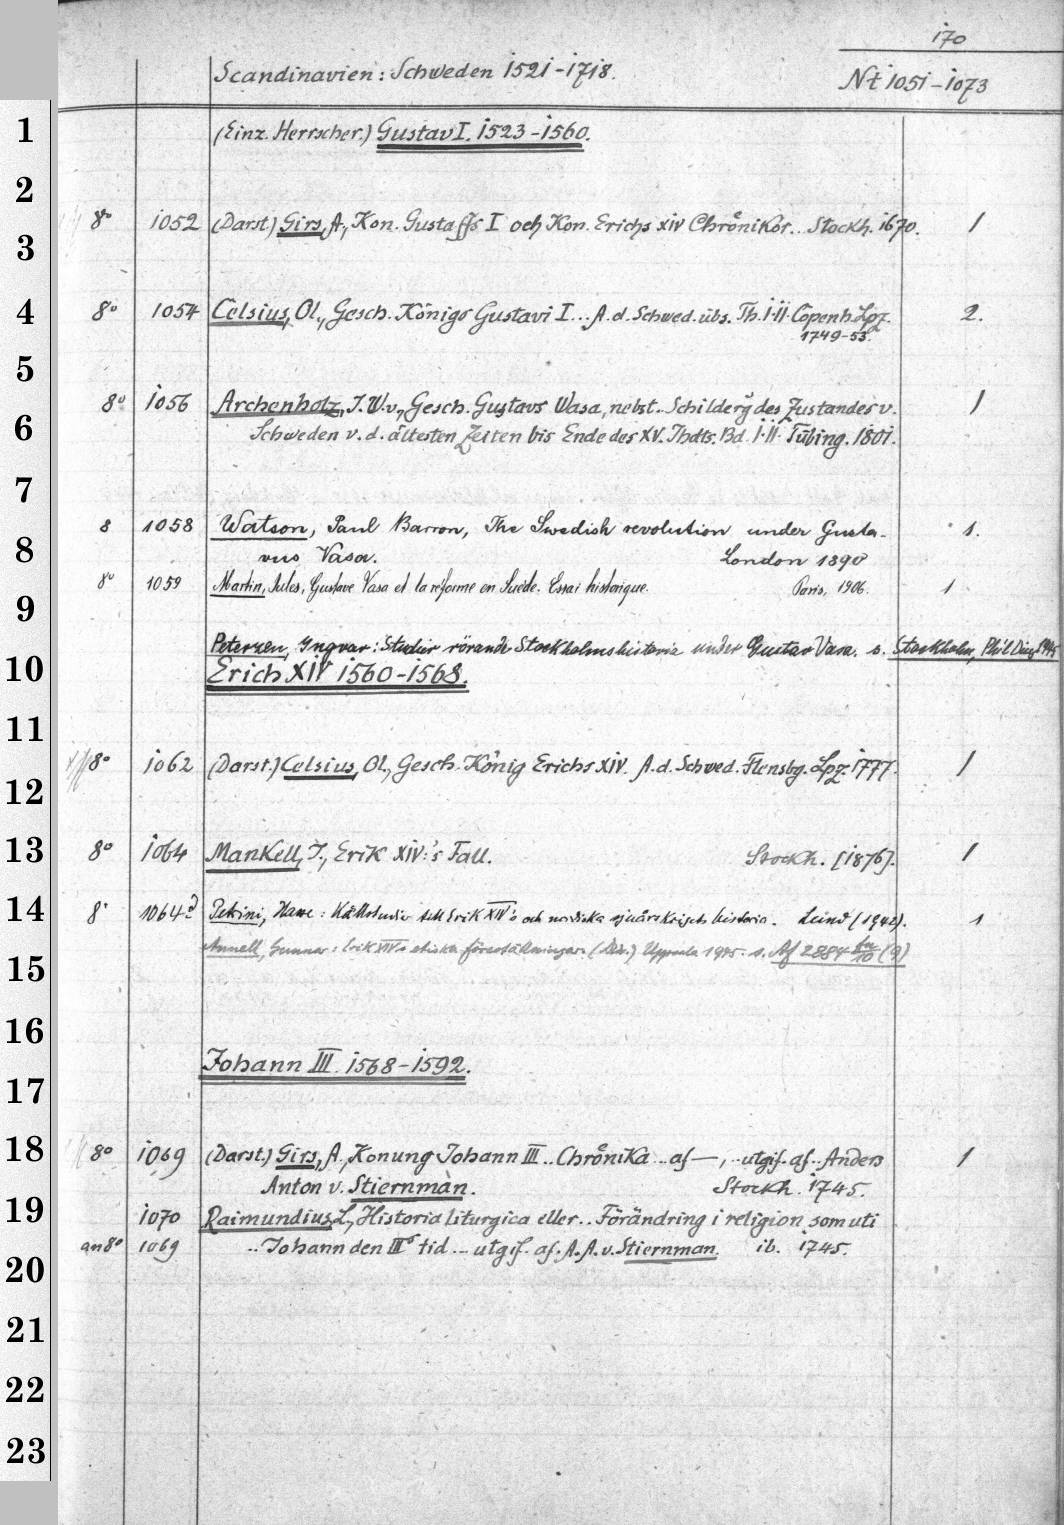 170
Scandinavien: Schweden 1521-1718.
Nt 1051-1073
1
(Einz. Herrscher.) Gustav I. 1523-1560.
2
8° 1052 (Darst.) Girs, A., Kon. Gustaffs I och Kon. Erichs XIV Chrönikor.. Stockh. 1670. 1
3
4
8° 1054 Celsius, Ol., Gesch. Königs Gustavi I... A. d. Schwed. übs. Th. I.II. Copenh. Lpz. 2.
1749-53.
5
8° 1056 Archenholz, J. W. v., Gesch. Gustavs Wasa, nebst.. Schilderg des Zustandes v. 1
6
Schweden v. d. ältesten Zeiten bis Ende des XV. Jhdts. Bd. I.II. Tübing. 1801.
7
8 1058 Watson, Paul Barron, The Swedish revolution under Gusta- 1.
8
vus Vasa. London 1890
8° 1059 Martin, Jules, Gustave Vasa et la réforme en Suède. Essai historique. Paris, 1906. 1
9
Petersen, Ingvar: Studier rörande Stockholms historia under Gustav Vasa. s. Stockholm, Phil Diss 1945
10
Erich XIV 1560-1568.
11
8° 1062 (Darst.) Celsius, Ol., Gesch. König Erichs XIV. A. d. Schwed. Flensbg. Lpz. 1777. 1
12
13
8° 1064 Mankell, J., Erik XIV:'s Fall. Stockh. [1876]. 1
14
8° 1064d Petrini, Hasse: Källstudier till Erik XIV's och nordiska sjuårskrigets historia. Lund (1942). 1
Annell, Gunnar: Erik XIV's etiska föreställningar. (Diss.) Uppsala 1945. s. Af 2884 (9)
15
16
Johann III. 1568-1592.
17
18
8° 1069 (Darst.) Girs, A., Konung Johann III.. Chrönika.. af —, .. utgif. af.. Anders 1
Anton v. Stiernman. Stockh. 1745.
19
1070 Raimundius, L., Historia Liturgica eller.. Förändring i religion som uti
an 8° 1069 .. Johann den IIIs tid ... utgif. af. A. A. v. Stiernman. ib. 1745.
20
21
22
23